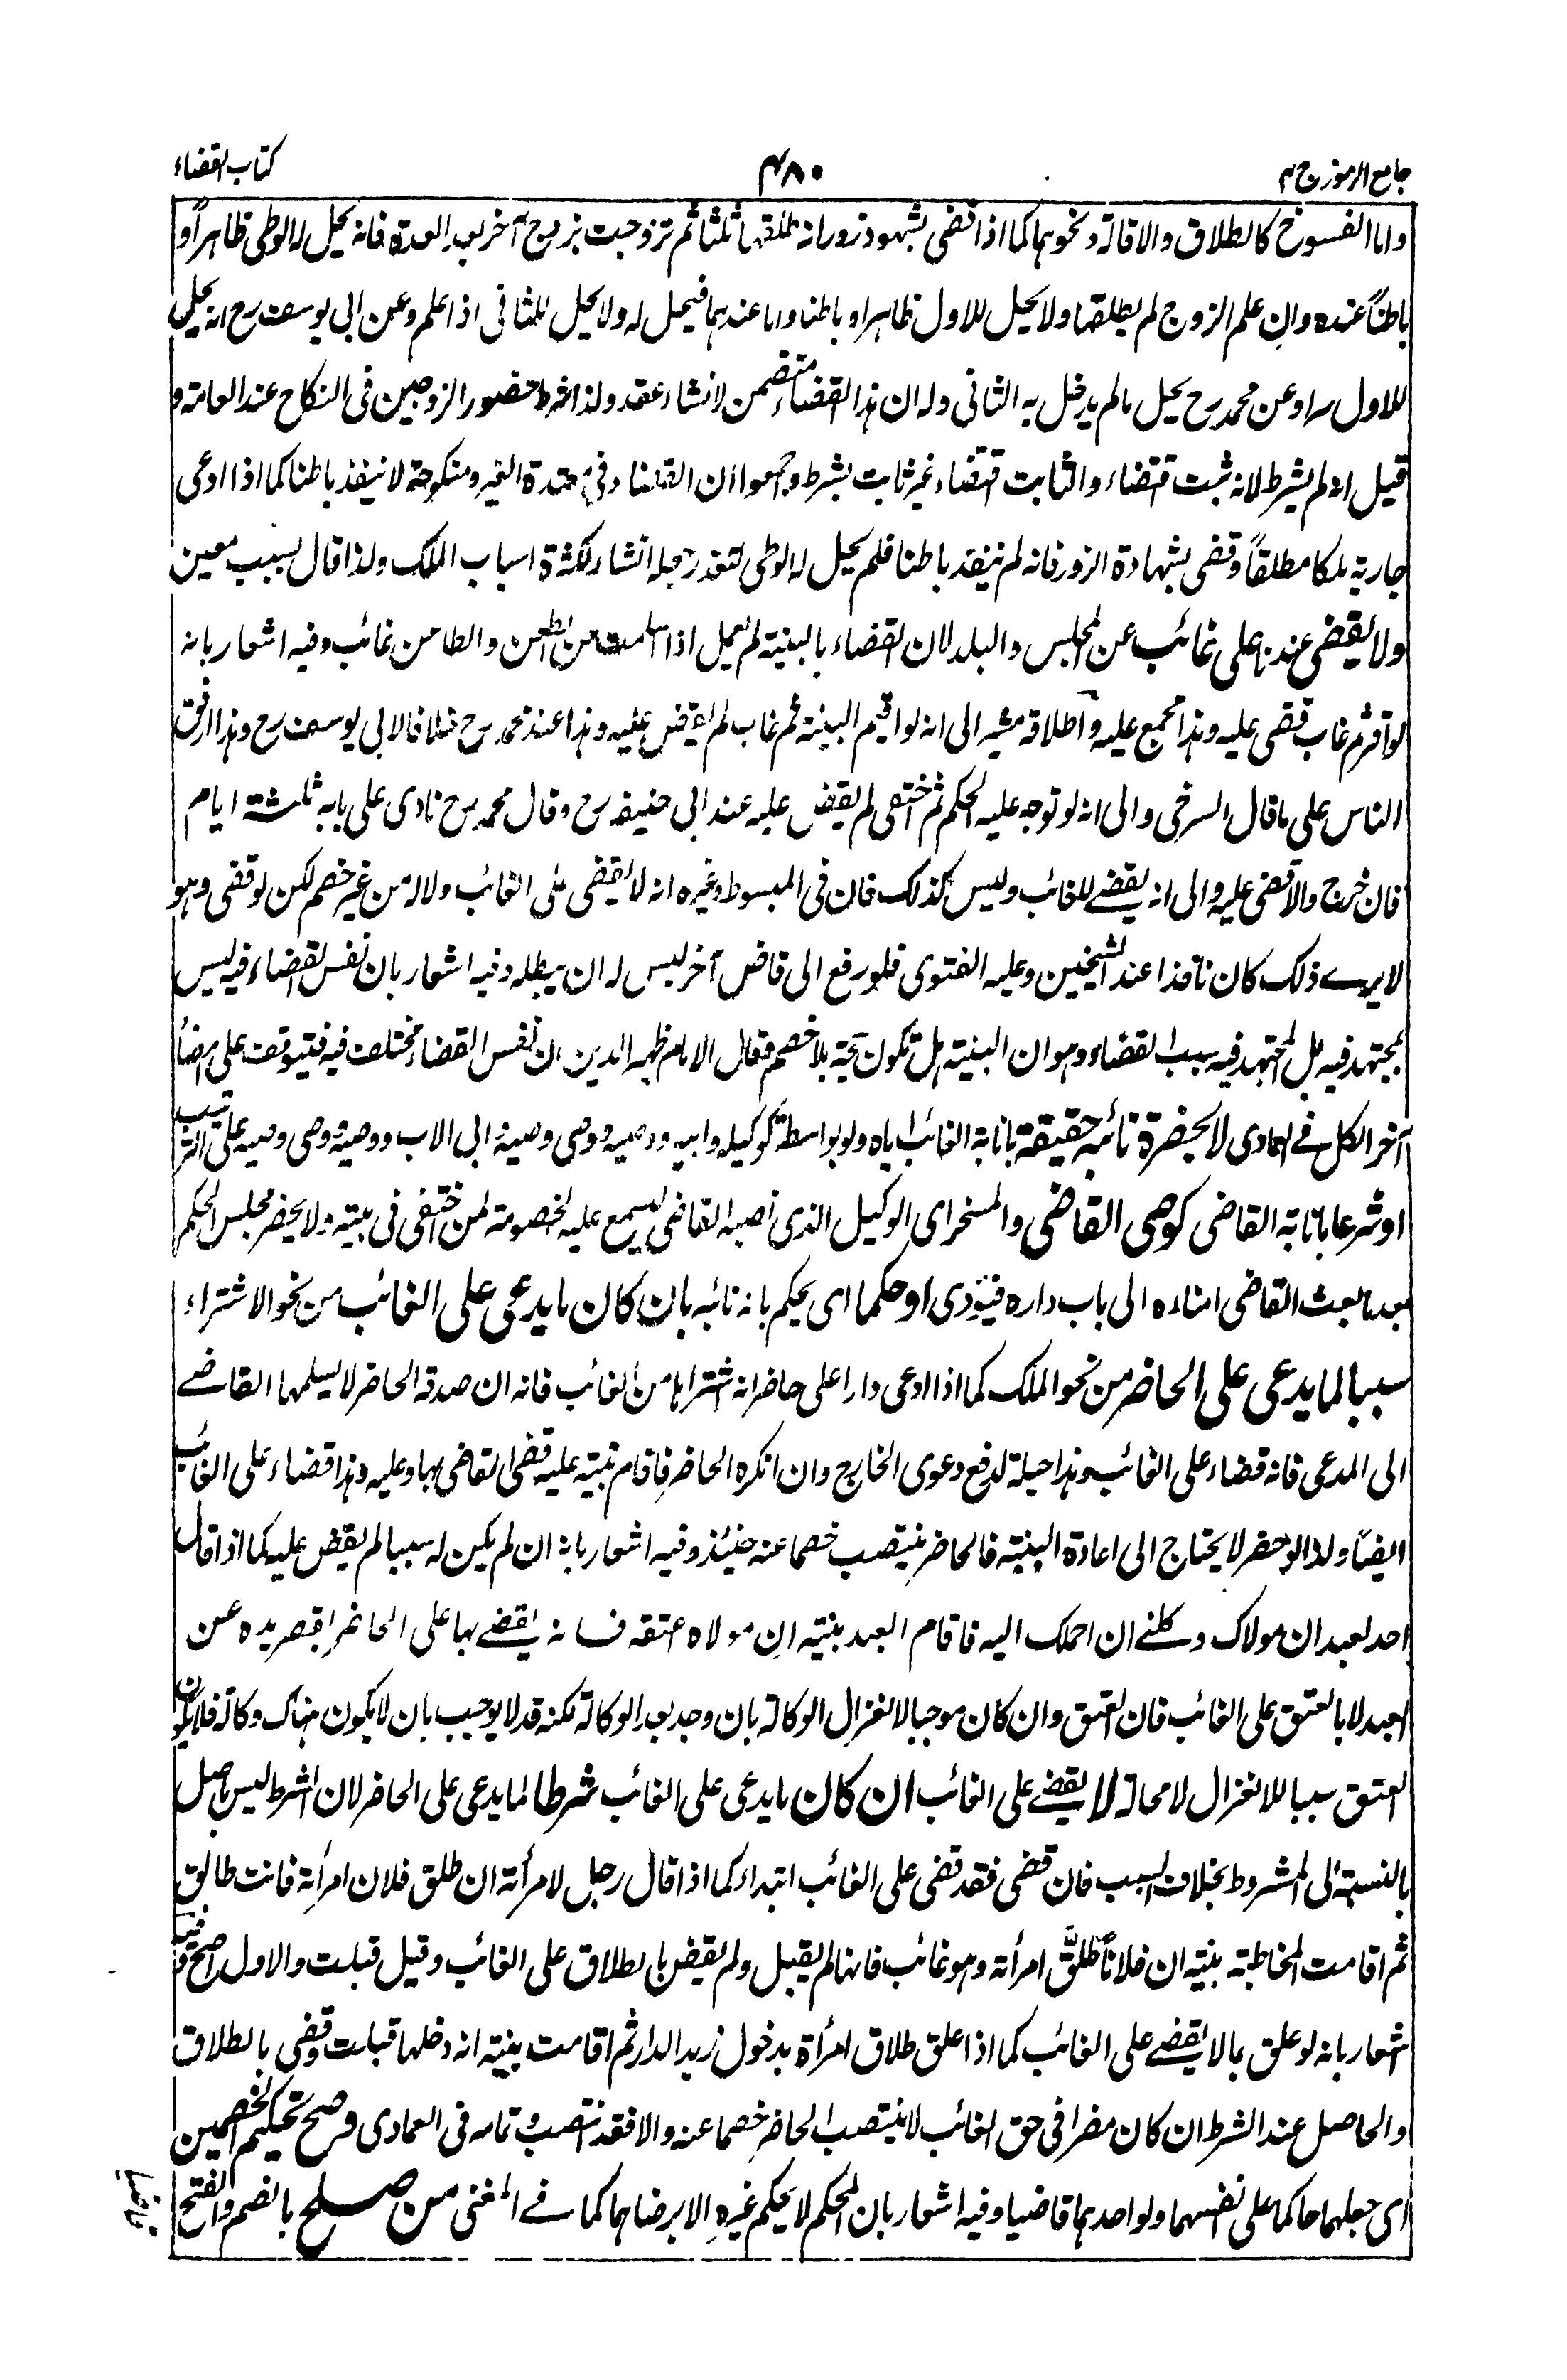 جامع الرموز ج ٢
٤٨٠
كتاب القضاء
واما الفسوخ كالطلاق والاقالة ونحوهما كما اذا قضى بشهود زور انه طلقها ثلثا ثم تزوجت بزوج آخر بعد العدة فانه يحل له الوطى ظاهراً و
باطناً عنده وان علم الزوج لم يطلقها ولا يحل للاول ظاهرا و باطنا واما عندهما فيحل له ولا يحل للثانى اذا علم وعن ابى يوسف رح انه يحل
للاول سرا وعن محمد رح يحل ما لم يدخل به الثانى وله ان هذا القضاء متضمن لانشاء عقد ولذا شرط حضور الزوجين فى النكاح عند العامة و
قيل انه لم يشرط لانه ثبت اقتضاء والثابت اقتضاء غير ثابت بشرط واجمعوا ان القضاء فى معتدة الغير ومنكوحته لا ينفذ باطنا كما اذا ادعى
جارية ملكا مطلقاً وقضى بشهادة الزور فانه لم ينفذ باطنا فلم يحل له الوطى لتعذر جعله انشاء لكثرة اسباب الملك ولذا قال بسبب معين
ولا يقضى عندنا على غائب عن المجلس والبلد لان القضاء بالبينة لم يعمل اذا سلمت من الطعن والطاعن غائب وفيه اشعار بانه
لو اقر ثم غاب قضى عليه وهذا مجمع عليه واطلاقه مشير الى انه لو اقيم البينة ثم غاب لم يقض عليه وهذا عند محمد رح خلافا لابى يوسف رح وهذا ارفق
الناس على ما قال السرخى والى انه لو توجه عليه الحكم ثم اختفى لم يقض عليه عند ابى حنيفه رح وقال محمد رح نادى على بابه ثلثة ايام
فان خرج والا قضى عليه والى انه يقضے للغائب وليس كذلك فان فى المبسوط وغيره انه لا يقضى على الغائب ولا له من غير خصم لكن لو قضى وهو
لا يرے ذلك كان نافذا عند الشيخين وعليه الفتوى فلو رفع الى قاض آخر ليس له ان يبطله وفيه اشعار بان نفس القضاء فيه ليس
بمجتهد فيه بل المجتهد فيه سبب القضاء وهو ان البينة هل تكون حجة بلا خصم فقال الامام ظهير الدين ان نفس القضاء مختلف فيه فيتوقف على امضاء
آخر الكل فے العمادى لا بحضرة نائبه حقيقة بانابة الغائب اياه ولو بواسطة كوكيله وابيه ووصيه ووصى وصية ابى الاب ووصيه ووصى وصيه على الترتيب
او شرعا بانابة القاضى كوصى القاضى والمسخر اى الوكيل الذى نصبه القاضى ليسمع عليه الخصومة لمن اختفى فى بيته ولا يحضر مجلس الحكم
بعد ما بعث القاضى امناءه الى باب داره فنودى او حكما اى يحكم بانه نائبه بان كان ما يدعى على الغائب من نحو الاشتراء
سببا لما يدعى على الحاضر من نحو الملك كما اذا ادعى دارا على حاضر انه اشتراها من الغائب فانه ان صدقه الحاضر لا يسلمها القاضے
الى المدعى فانه قضاء على الغائب وهذا حيلة لدفع دعوى الخارج وان انكره الحاضر فاقام بينة عليه قضى القاضى بها وعليه وهذا قضاء على الغائب
ايضا ولذا لو حضر لا يحتاج الى اعادة البينة فالحاضر ينتصب خصما عنه حينئذ وفيه اشعار بانه ان لم يكن له سببا لم يقض عليه كما اذا قال
احد لعبد ان مولاك وكلنے ان احملك اليه فاقام العبد بينة ان مولاه عتقه فانه يقضے بها على الحاضر بقصر يده عن
العبد لا بالعتق على الغائب فان العتق وان كان موجبا لانعزال الوكالة بان وجد بعد الوكالة لكنه قد لا يوجب بان لا يكون هناك وكالة فلا يكون
العتق سببا للانعزال لا محالة لا يقضے على الغائب ان كان ما يدعى على الغائب شرطا لما يدعى على الحاضر لان الشرط ليس باصل
بالنسبة الى المشروط بخلاف السبب فان قضى فقد قضى على الغائب ابتداء كما اذا قال رجل لامرأته ان طلق فلان امرأته فانت طالق
ثم اقامت المخاطبة بينة ان فلاناً طلق امرأته وهو غائب فانها لم يقبل ولم يقض بالطلاق على الغائب وقيل قبلت والاول اصح وفيه
اشعار بانه لو علق بما لا يقضے على الغائب كما اذا علق طلاق امرأة بدخول زيد الدار ثم اقامت بينة انه دخلها قبلت وقضى بالطلاق
والحاصل عند الشرط ان كان مضرا فى حق الغائب لا ينتصب الحاضر خصما عنه والا فقد انتصب وتمامه فى العمادى وصح تحكيم الخصمين
اى جعلهما حاكما على نفسهما ولو احدهما قاضيا وفيه اشعار بان المحكم لا يحكم غيره الا برضاهما كما فے المغنى من صلح بالضم والفتح
قاضيا